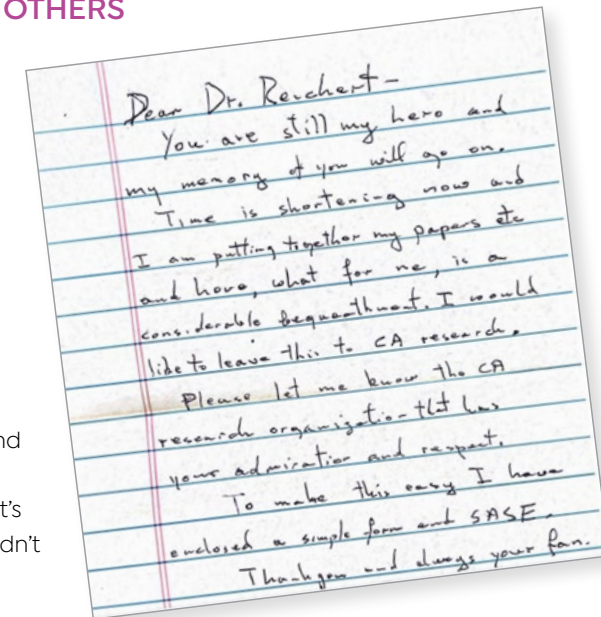 OTHERS
Dear Dr. Reichert-
You are still my hero and
my memory of you will go on.
Time is shortening now and
I am putting together my papers etc
and have, what for me, is a
considerable bequeathment. I would
like to leave this to CA research.
Please let me know the CA
research organization that has
your admiration and respect.
To make this easy I have
enclosed a simple form and SASE.
Thank you and always your fan.
nd
t's
dn't